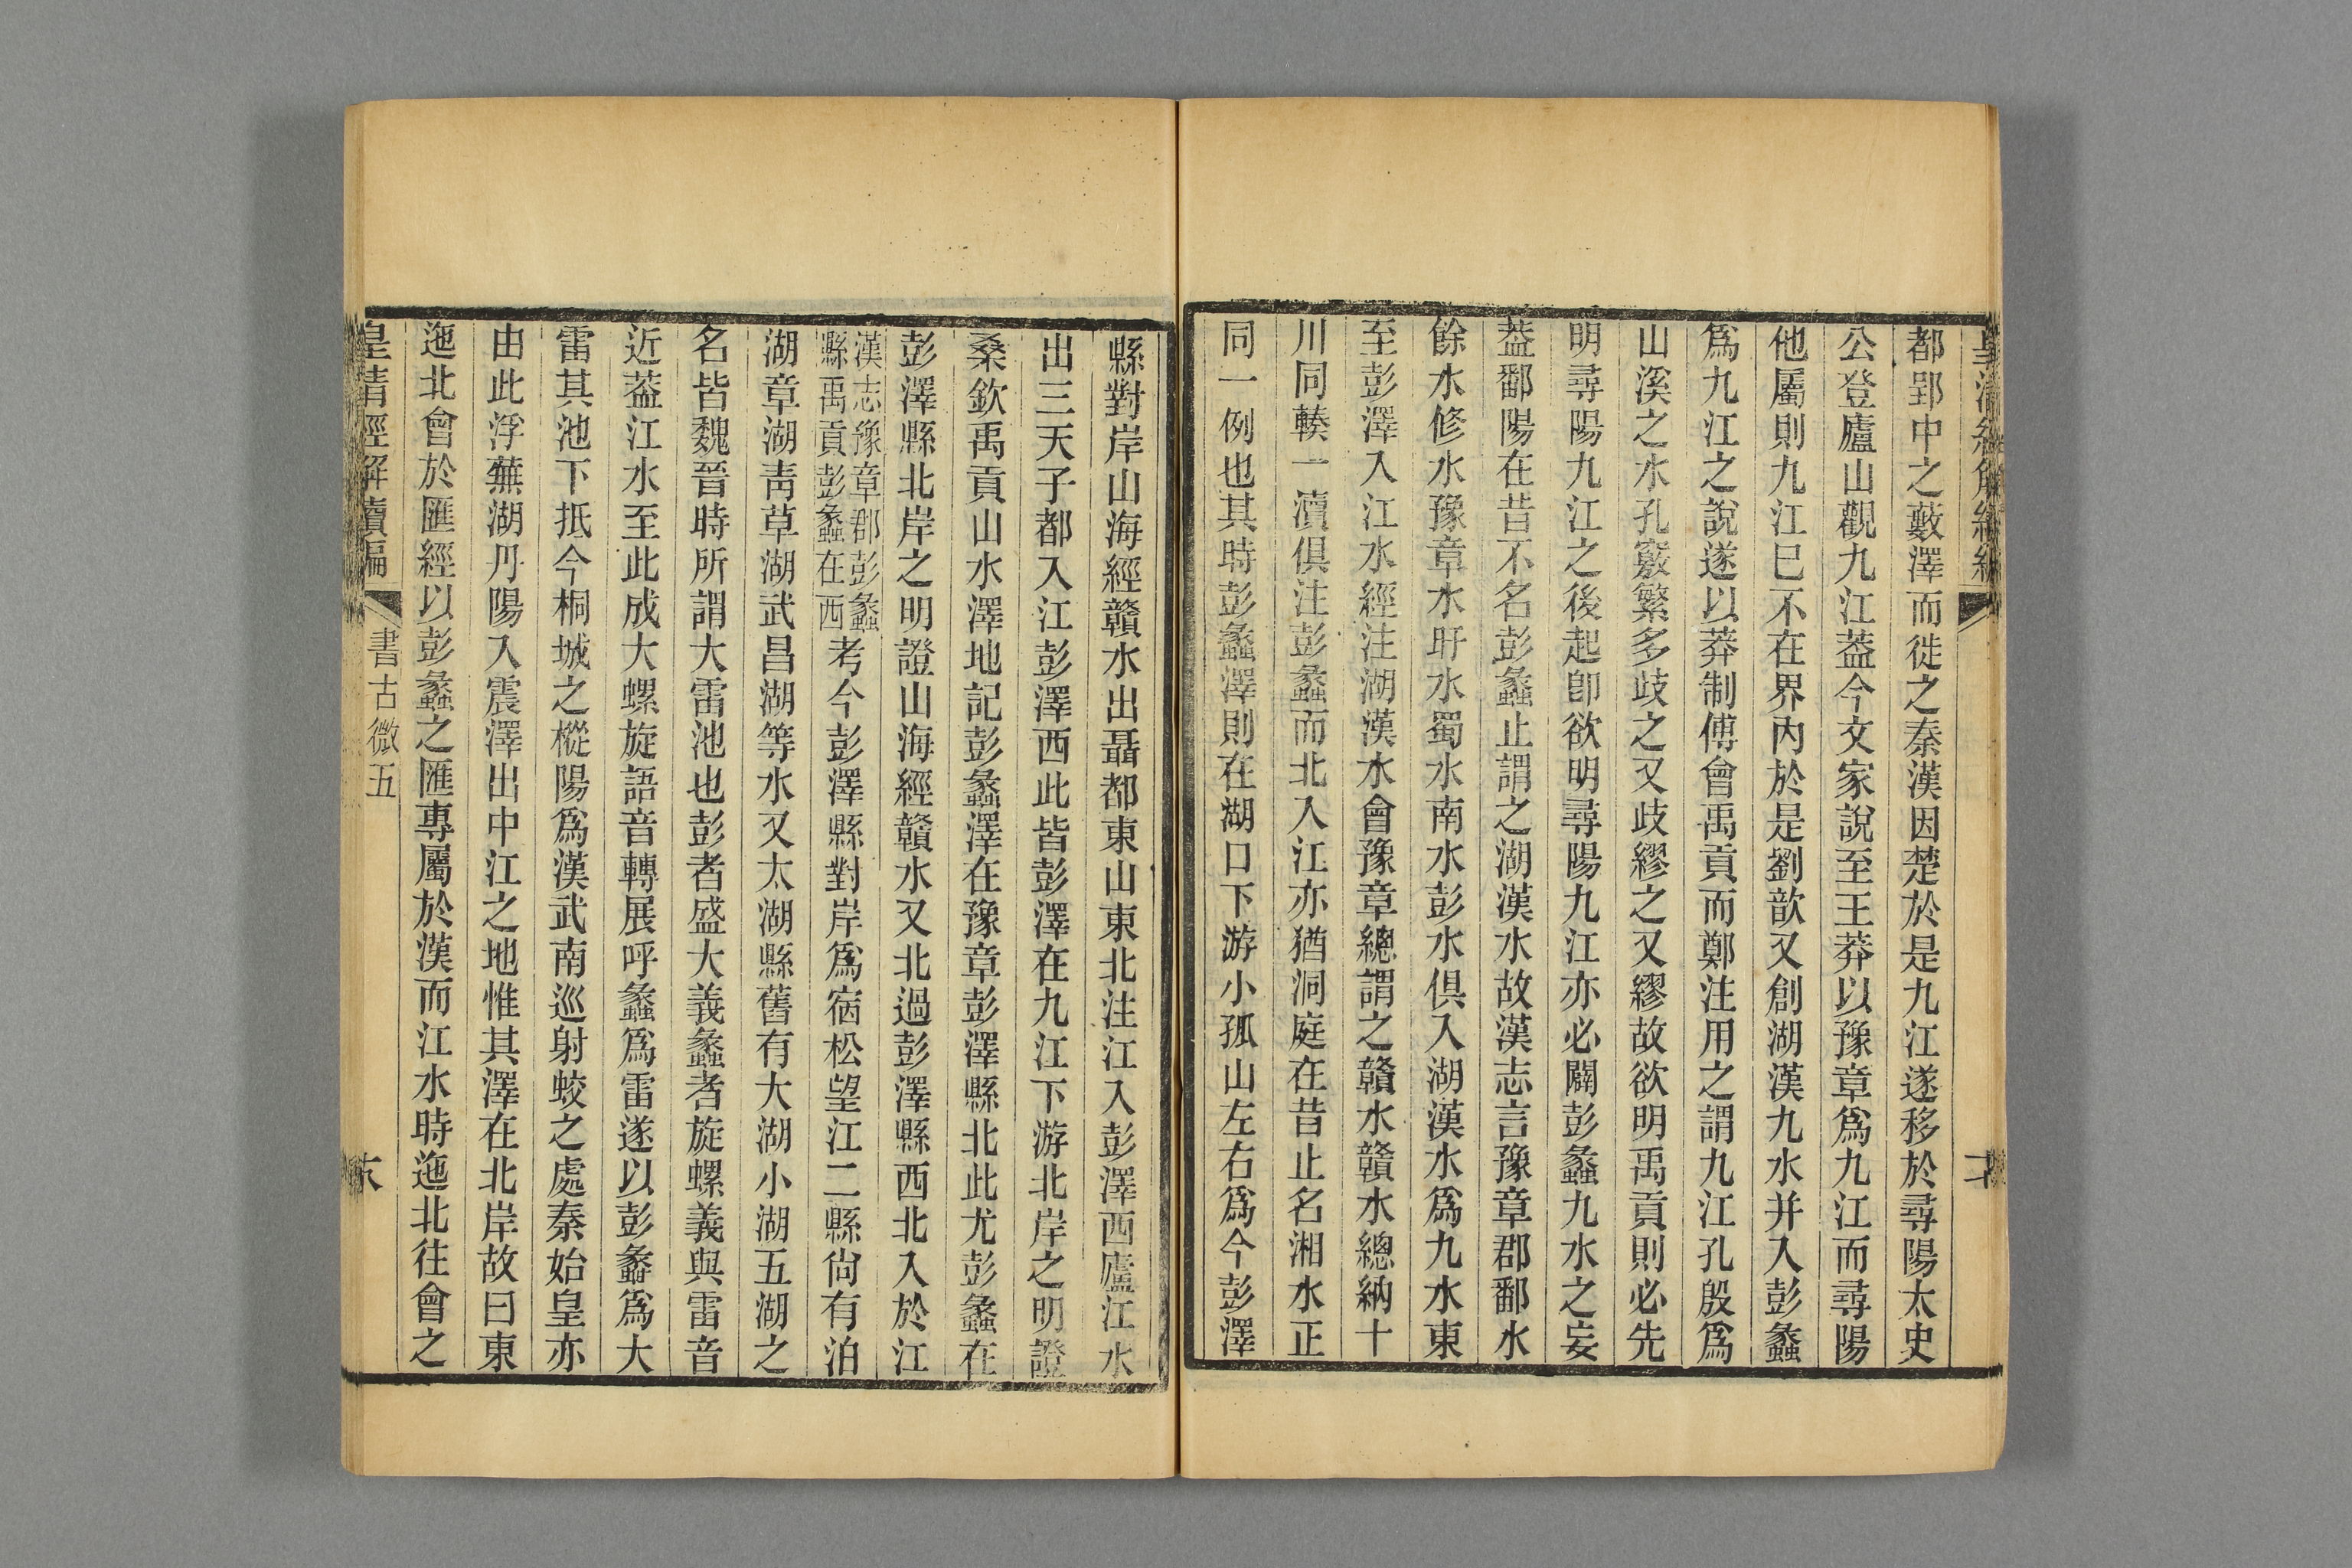 都郢中之藪澤而徙之秦漢因楚於是九江遂移於尋陽太史
公登廬山觀九江葢今文家說至王莽以豫章爲九江而尋陽
他屬則九江巳不在界內於是劉歆又創湖漢九水并入彭蠡
爲九江之說遂以莽制傅會禹貢而鄭注用之謂九江孔殷爲
山溪之水孔竅繁多歧之又歧繆之又繆故欲明禹貢則必先
明尋陽九江之後起卽欲明尋陽九江亦必闢彭蠡九水之妄
葢鄱陽在昔不名彭蠡止謂之湖漢水故漢志言豫章郡鄱水
餘水修水豫章水盱水蜀水南水彭水俱入湖漢水爲九水東
至彭澤入江水經注湖漢水會豫章總謂之贛水贛水總納十
川同輳一瀆俱注彭蠡而北入江亦猶洞庭在昔止名湘水正
同一例也其時彭蠡澤則在湖口下游小孤山左右爲今彭澤
縣對岸山海經贛水出聶都東山東北注江入彭澤西廬江水
出三天子都入江彭澤西此皆彭澤在九江下游北岸之明證
桑欽禹貢山水澤地記彭蠡澤在豫章彭澤縣北此尤彭蠡在
彭澤縣北岸之明證山海經贛水又北過彭澤縣西北入於江
漢志豫章郡彭蠡
縣禹貢彭蠡在西
考今彭澤縣對岸爲宿松望江二縣尙有泊
湖章湖靑草湖武昌湖等水又太湖縣舊有大湖小湖五湖之
名皆魏晉時所謂大雷池也彭者盛大義蠡者旋螺義與雷音
近葢江水至此成大螺旋語音轉展呼蠡爲雷遂以彭蠡爲大
雷其池下抵今桐城之樅陽爲漢武南巡射蛟之處秦始皇亦
由此浮蕪湖丹陽入震澤出中江之地惟其澤在北岸故曰東
迤北會於匯經以彭蠡之匯專屬於漢而江水時迤北往會之
皇清經解續編
書古微五